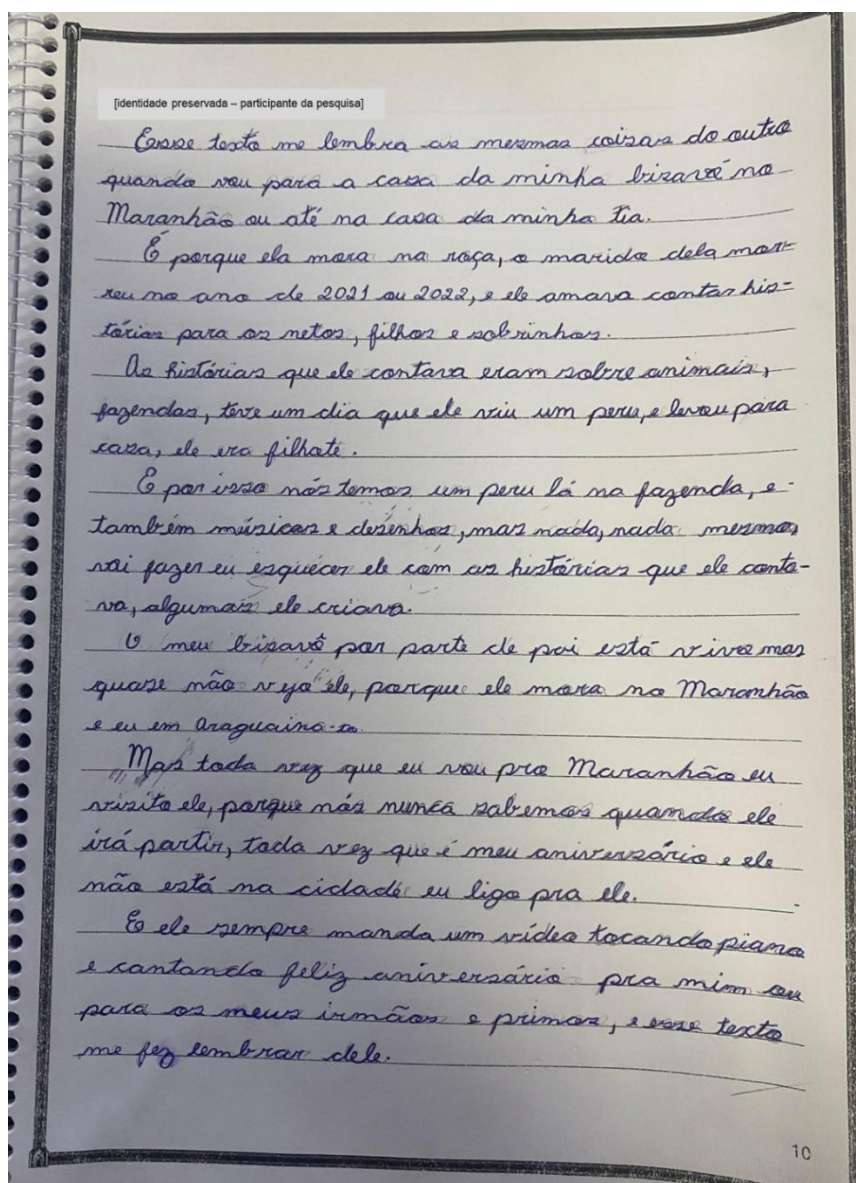 [identidade preservada – participante da pesquisa]
Esse texto me lembra as mesmas coisas do outro
quando vou para a casa da minha bizavó no
Maranhão ou até na casa da minha tia.
É porque ela mora na roça, o marido dela mor-
reu no ano de 2021 ou 2022, e ele amava contar his-
tórias para os netos, filhos e sobrinhos.
As histórias que ele contava eram sobre animais,
fazendas, teve um dia que ele viu um peru, e levou para
casa, ele era filhote.
E por isso nós temos um peru lá na fazenda, e
também músicas e desenhos, mas nada, nada mesmo,
vai fazer eu esquecer ele com as histórias que ele conta-
va, algumas ele criava.
O meu bisavô por parte de pai está vivo mas
quase não vejo ele, porque ele mora no Maranhão
e eu em Araguaína-to.
Mas toda vez que eu vou pra Maranhão eu
visito ele, porque nós nunca sabemos quando ele
irá partir, toda vez que é meu aniversário e ele
não está na cidade eu ligo pra ele.
E ele sempre manda um vídeo tocando piano
e cantando feliz aniversário pra mim ou
para os meus irmãos e primos, e esse texto
me fez lembrar dele.
10